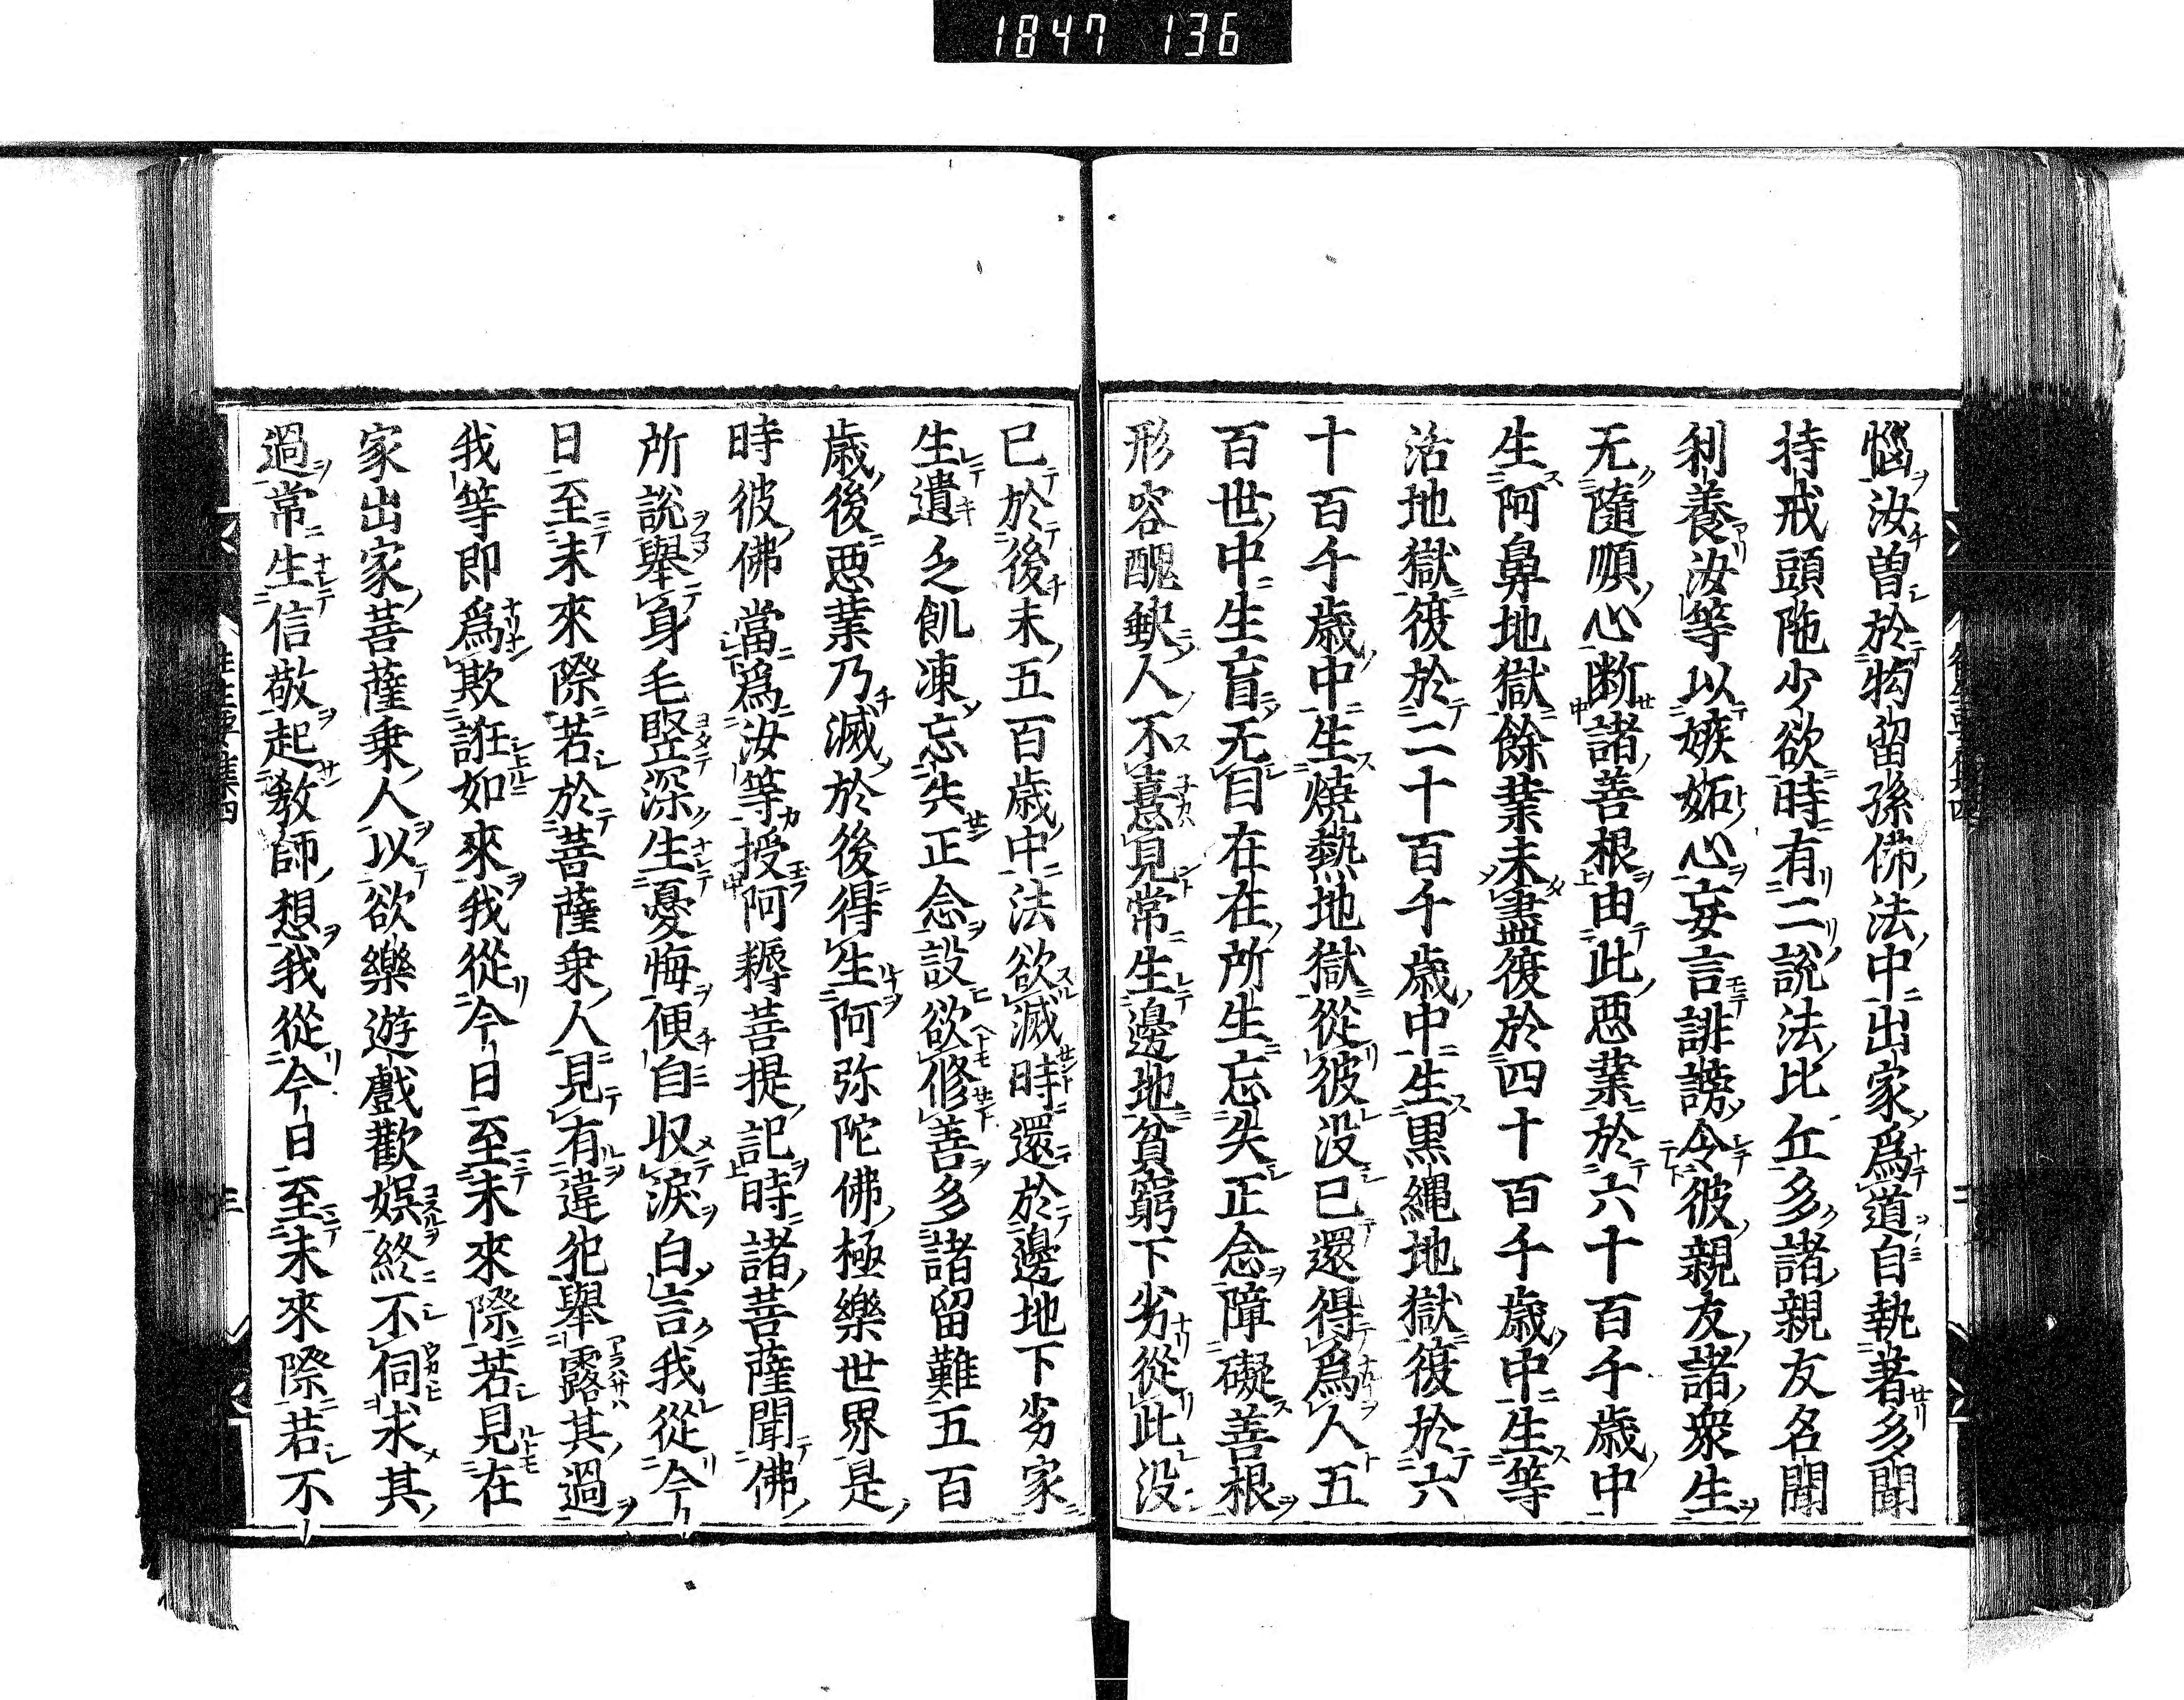 1847 136
惱汝曽於拘留孫佛法中出家爲道自執著多聞
持戒頭陁少欲時有二説法比丘多諸親友名聞
利養汝等以嫉妬心妄言誹謗令彼親友諸衆生
无隨順心断諸善根由此惡業於六十百千歳中
生阿鼻地獄餘業未盡復於四十百千歳中生等
活地獄復於二十百千歳中生黒縄地獄復於六
十百千歳中生焼熱地獄從彼没已還得爲人五
百世中生盲无目在在所生忘失正念障礙善根
形容醜缺人不憙見常生邊地貧窮下劣從此没
已於後末五百歳中法欲滅時還於邊地下劣家
生遺乏飢凍忘失正念設欲修善多諸留難五百
歳後惡業乃滅於後得生阿弥陀佛極樂世界是
時彼佛當爲汝等授阿耨菩提記時諸菩薩聞佛
所說舉身毛竪深生憂悔便自収淚白言我從今
日至未來際若於菩薩乗人見有違犯舉露其過
我等即爲欺誑如來我從今日至未來際若見在
家出家菩薩乗人以欲樂遊戲歡娯終不伺求其
過常生信敬起教師想我從今日至未來際若不